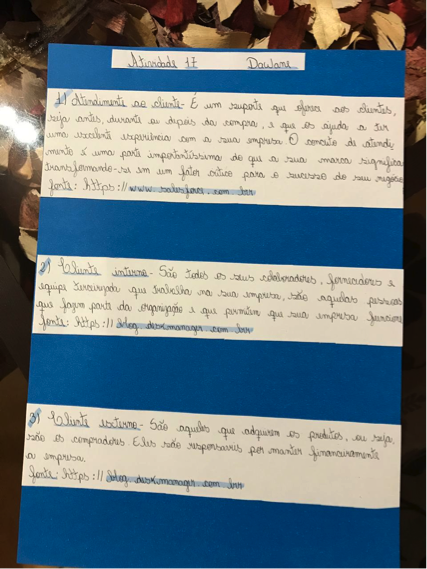 Atividade 17 Daviane
1) Atendimento ao cliente - É um suporte que oferece aos clientes,
seja antes, durante ou depois da compra, e que os ajuda a ter
uma excelente experiência com a sua empresa O conceito de atendi
mento é uma parte importantíssima do que a sua marca significa
transformando-se em um fator crítico para o sucesso do seu negócio
fonte: https://www.salesforce.com.br
2) Cliente interno - São todos os seus colaboradores, fornecedores e
equipe terceirizada que trabalha na sua empresa, são aquelas pessoas
que fazem parte da organização e que permitem que sua empresa funcione
fonte: https://blog.deskmanager.com.br
3) Cliente externo - São aqueles que adquirem os produtos, ou seja,
são os compradores. Eles são responsáveis por manter financeiramente
a empresa.
fonte: https://blog.deskmanager.com.br